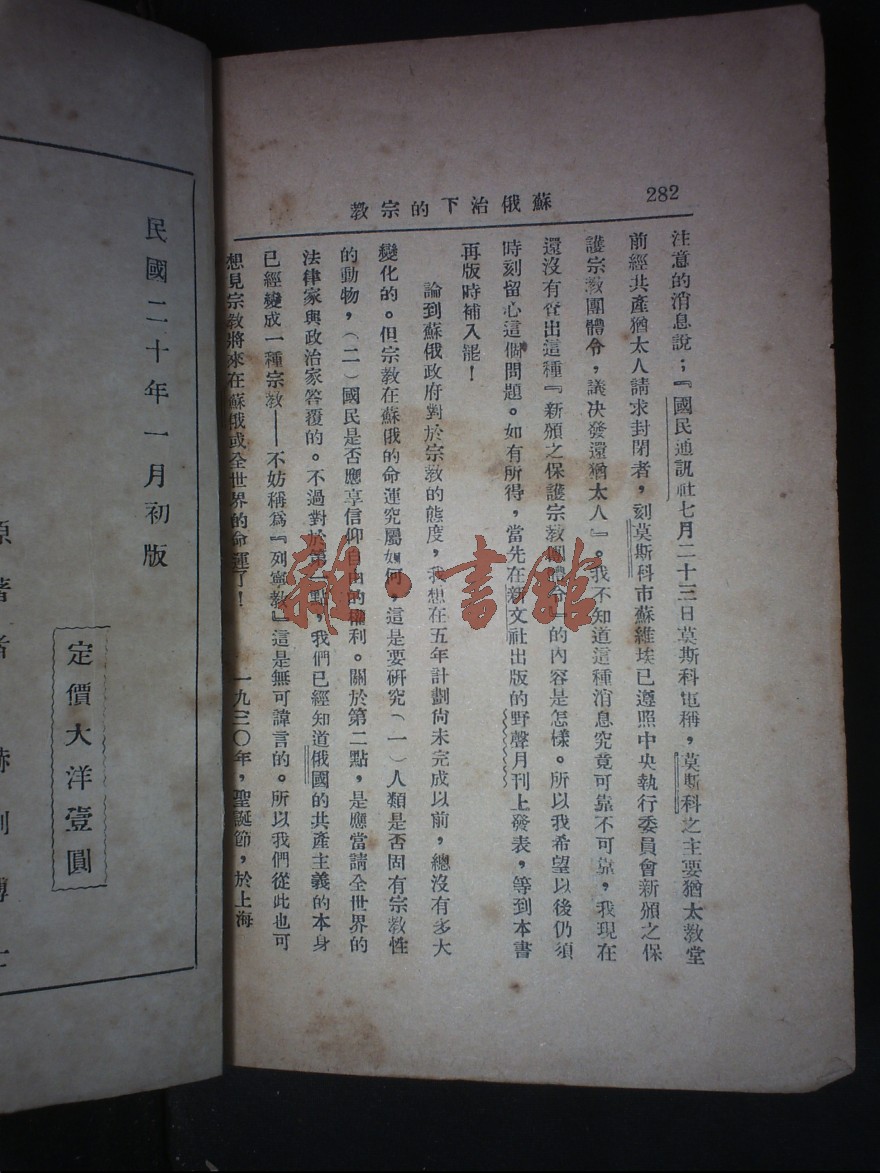 282
蘇俄治下的宗教
注意的消息說；『國民通訊社七月二十三日莫斯科電稱，莫斯科之主要猶太教堂
前經共產猶太人請求封閉者，刻莫斯科市蘇維埃已遵照中央執行委員會新頒之保
護宗教團體令，議決發還猶太人』。我不知道這種消息究竟可靠不可靠，我現在
還沒有查出這種『新頒之保護宗教團體令』的內容是怎樣。所以我希望以後仍須
時刻留心這個問題。如有所得，當先在新文社出版的野聲月刊上發表，等到本書
再版時補入罷！
論到蘇俄政府對於宗教的態度，我想在五年計劃尚未完成以前，總沒有多大
變化的。但宗教在蘇俄的命運究屬如何，這是要研究（一）人類是否固有宗教性
的動物，（二）國民是否應享信仰自由的權利。關於第二點，是應當請全世界的
法律家與政治家答覆的。不過對於第一點，我們已經知道俄國的共產主義的本身
已經變成一種宗教——不妨稱為『列寧教』這是無可諱言的。所以我們從此也可
想見宗教將來在蘇俄或全世界的命運了！ 一九三〇年，聖誕節，於上海
民國二十年一月初版
定價大洋壹圓
原著者 赫克博士
雜·書館